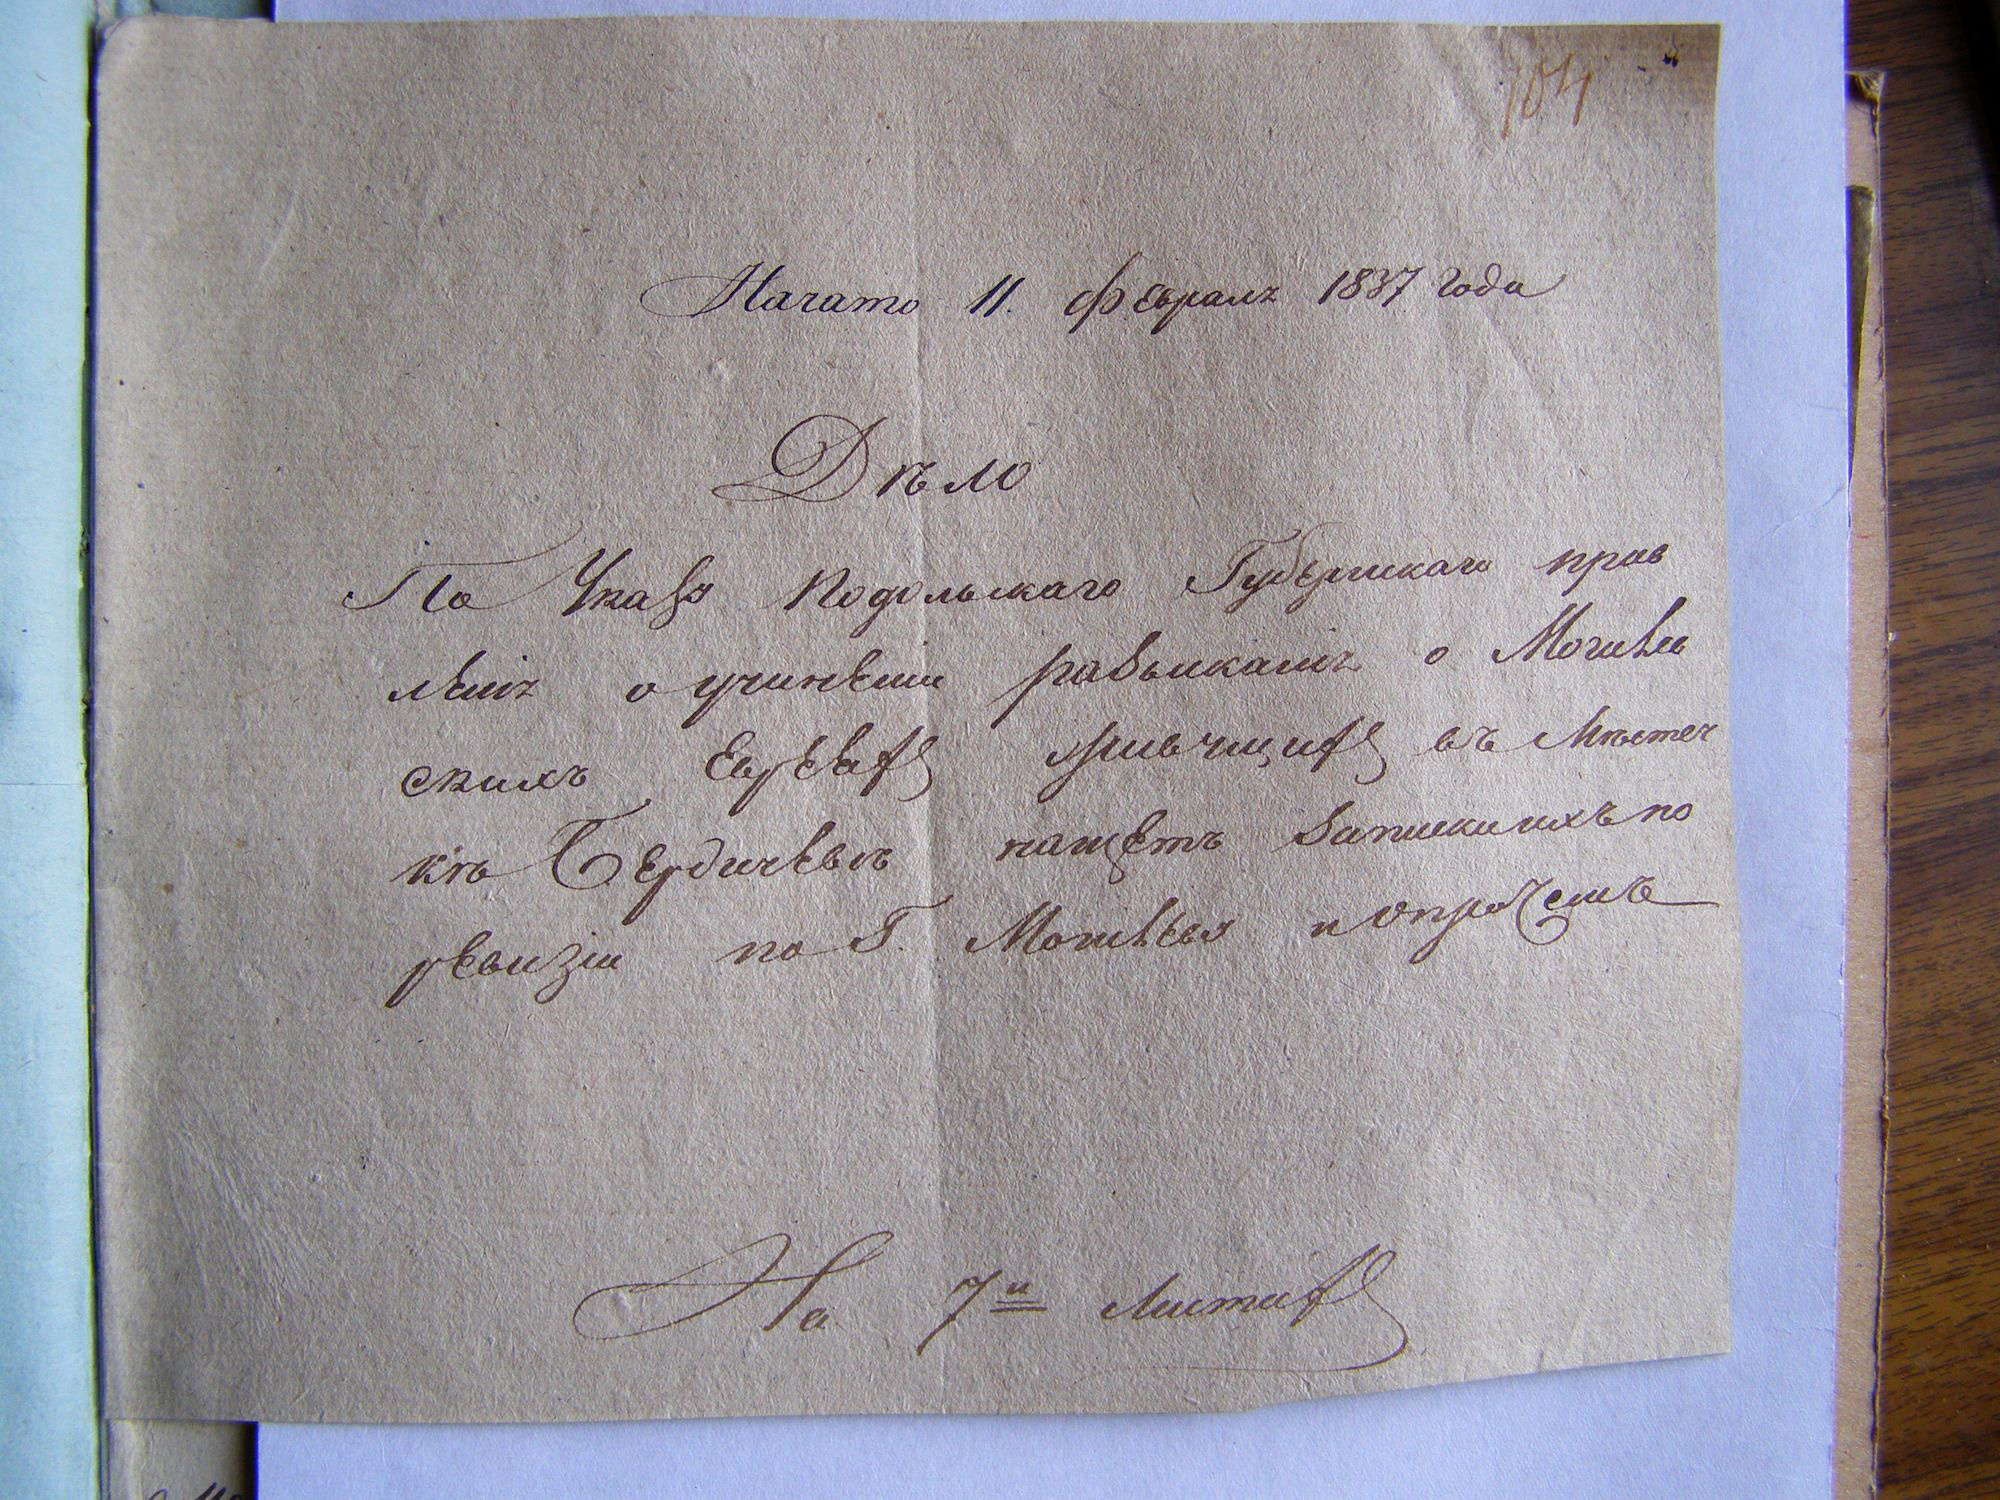 104
Начато 11. Февраля 1837 года
Дѣло
По Указу Подольскаго Губернскаго прав
ленія о учиненіи розысканія о Могилев
скихъ Евреяхъ въ Мѣстеч
кѣ Бердичевѣ насщетъ записки ихъ по
ревизіи по Г. Могилеву и о прочемъ
На 7и листахъ